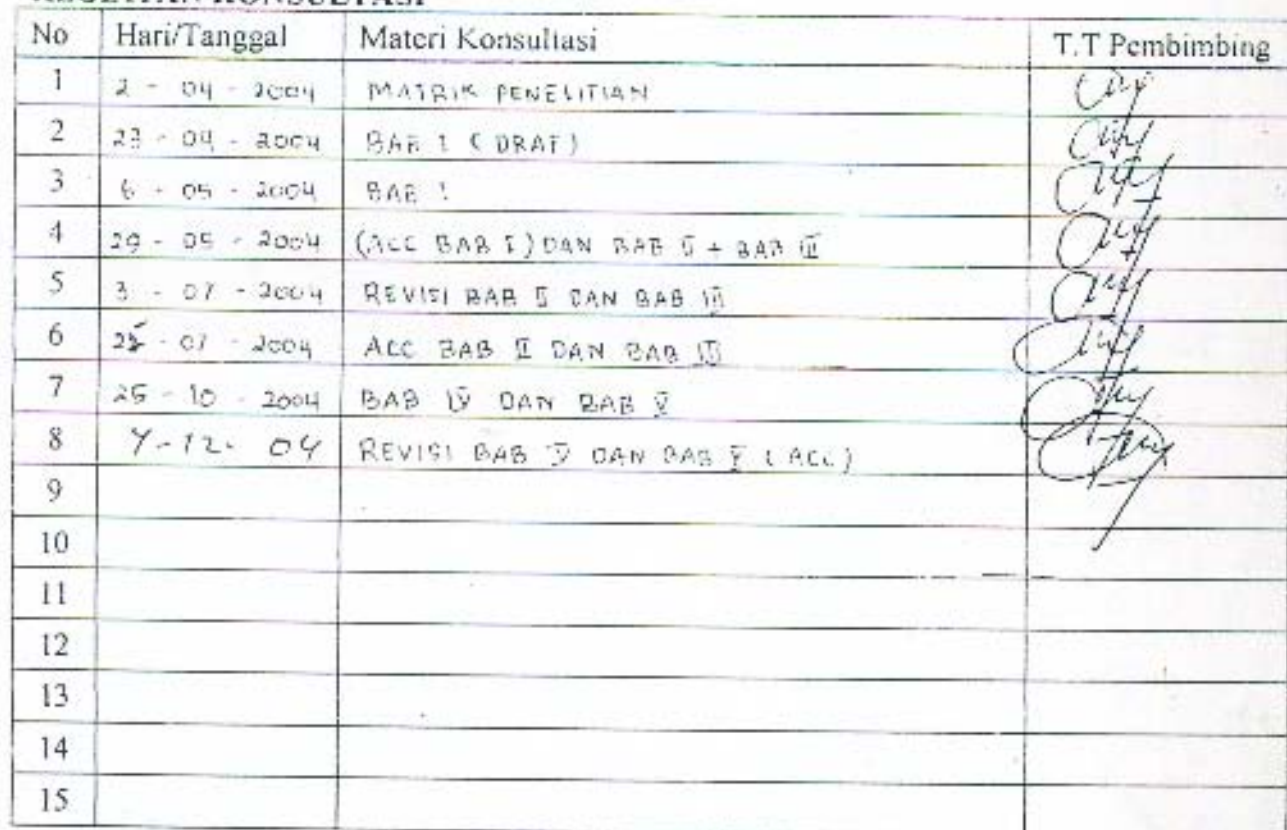 KEGIATAN KONSULTASI
No Hari/Tanggal Materi Konsultasi T.T Pembimbing
1 2 - 04 - 2004 MATRIK PENELITIAN
2 23 - 04 - 2004 BAB I (DRAF)
3 6 - 05 - 2004 BAB I
4 29 - 05 - 2004 (ACC BAB I) DAN BAB II + BAB III
5 3 - 07 - 2004 REVISI BAB II DAN BAB III
6 25 - 07 - 2004 ACC BAB II DAN BAB III
7 25 - 10 - 2004 BAB IV DAN BAB V
8 7-12- 04 REVISI BAB IV DAN BAB V (ACC)
9
10
11
12
13
14
15